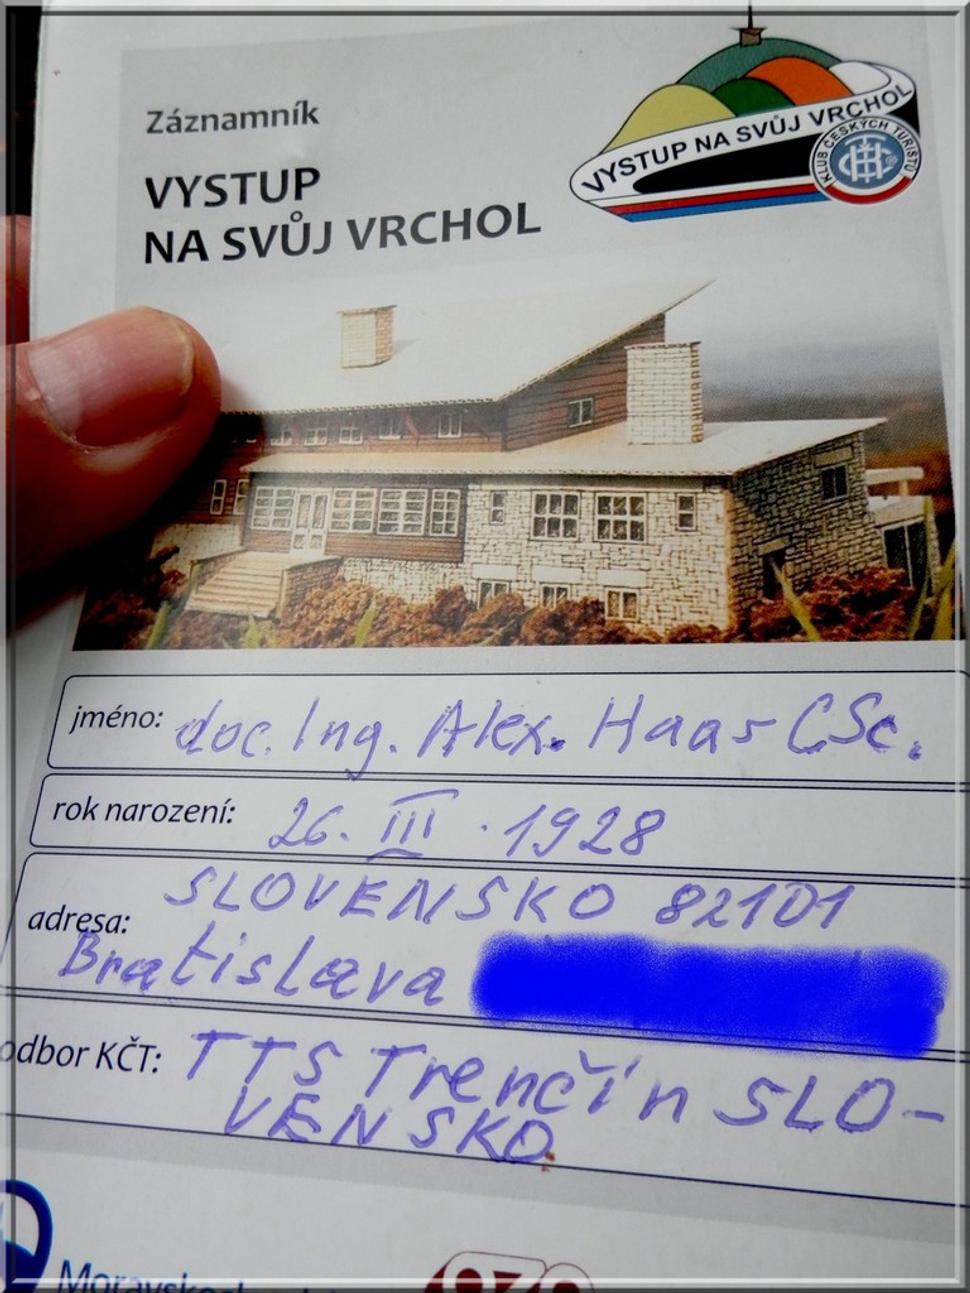 VYSTUP NA SVŮJ VRCHOL
KLUB ČESKÝCH TURISTŮ
Záznamník
VYSTUP
NA SVŮJ VRCHOL
jméno: doc. Ing. Alex. Haas CSc.
rok narození: 26. III. 1928
SLOVENSKO 82101
adresa:
Bratislava
odbor KČT: TTS Trenčín SLO-
VENSKO